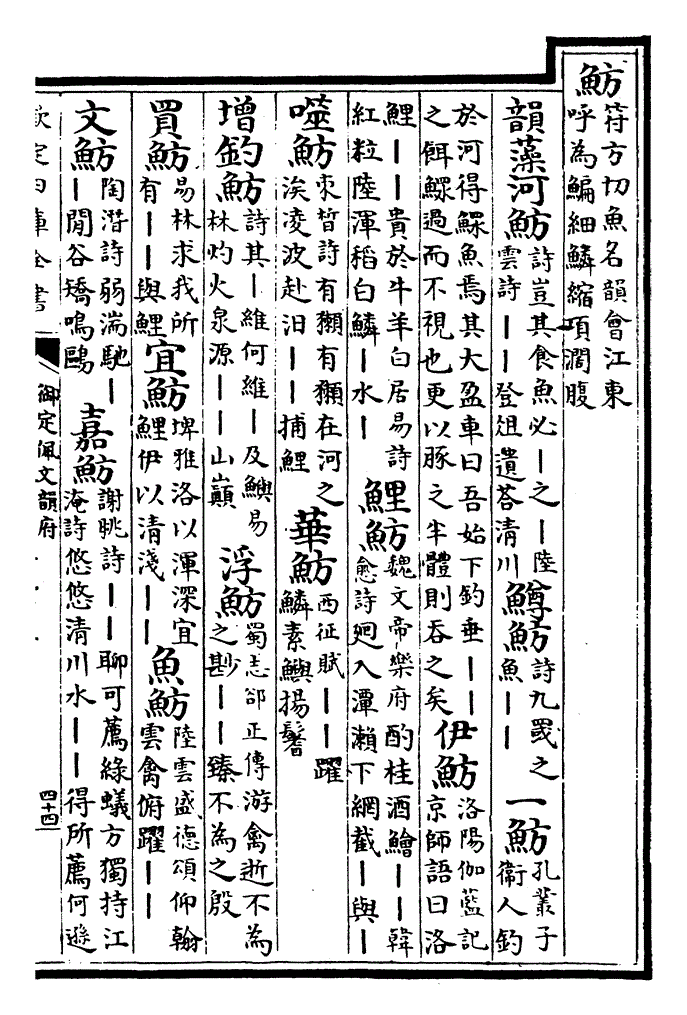 魴符方切魚名韻會江東呼為鯿細鱗縮項濶腹
韻藻河魴詩豈其食魚必丨之丨陸雲詩丨丨登俎遺荅清川鱒魴詩九罭之魚丨丨一魴孔叢子衛人釣
於河得鰥魚焉其大盈車曰吾始下釣垂丨丨之餌鰥過而不視也更以豚之半體則吞之矣伊魴洛陽伽藍記京師語曰洛
鯉丨丨貴於牛羊白居易詩紅粒陸渾稻白鱗丨水丨鯉魴魏文帝樂府酌桂酒鱠丨丨韓愈詩廻入潭瀨下網截丨與丨
噬魴束晳詩有獺有獺在河之涘凌波赴汩丨丨捕鯉華魴西征賦丨丨躍鱗素鱮揚鬐
增釣魴詩其丨維何維丨及鱮易林灼火泉源丨丨山巔浮魴蜀志郤正傳游禽逝不為之尠丨丨臻不為之殷
買魴易林求我所有丨丨與鯉宜魴埤雅洛以渾深宜鯉伊以清淺丨丨魚魴陸雲盛德頌仰翰雲禽俯躍丨丨
文魴陶潛詩弱湍馳丨丨閒谷矯鳴鷗嘉魴謝眺詩丨丨聊可薦綠蟻方獨持江淹詩悠悠清川水丨丨得所薦何遜
欽定四庫全書
御定佩文韻府
四十四